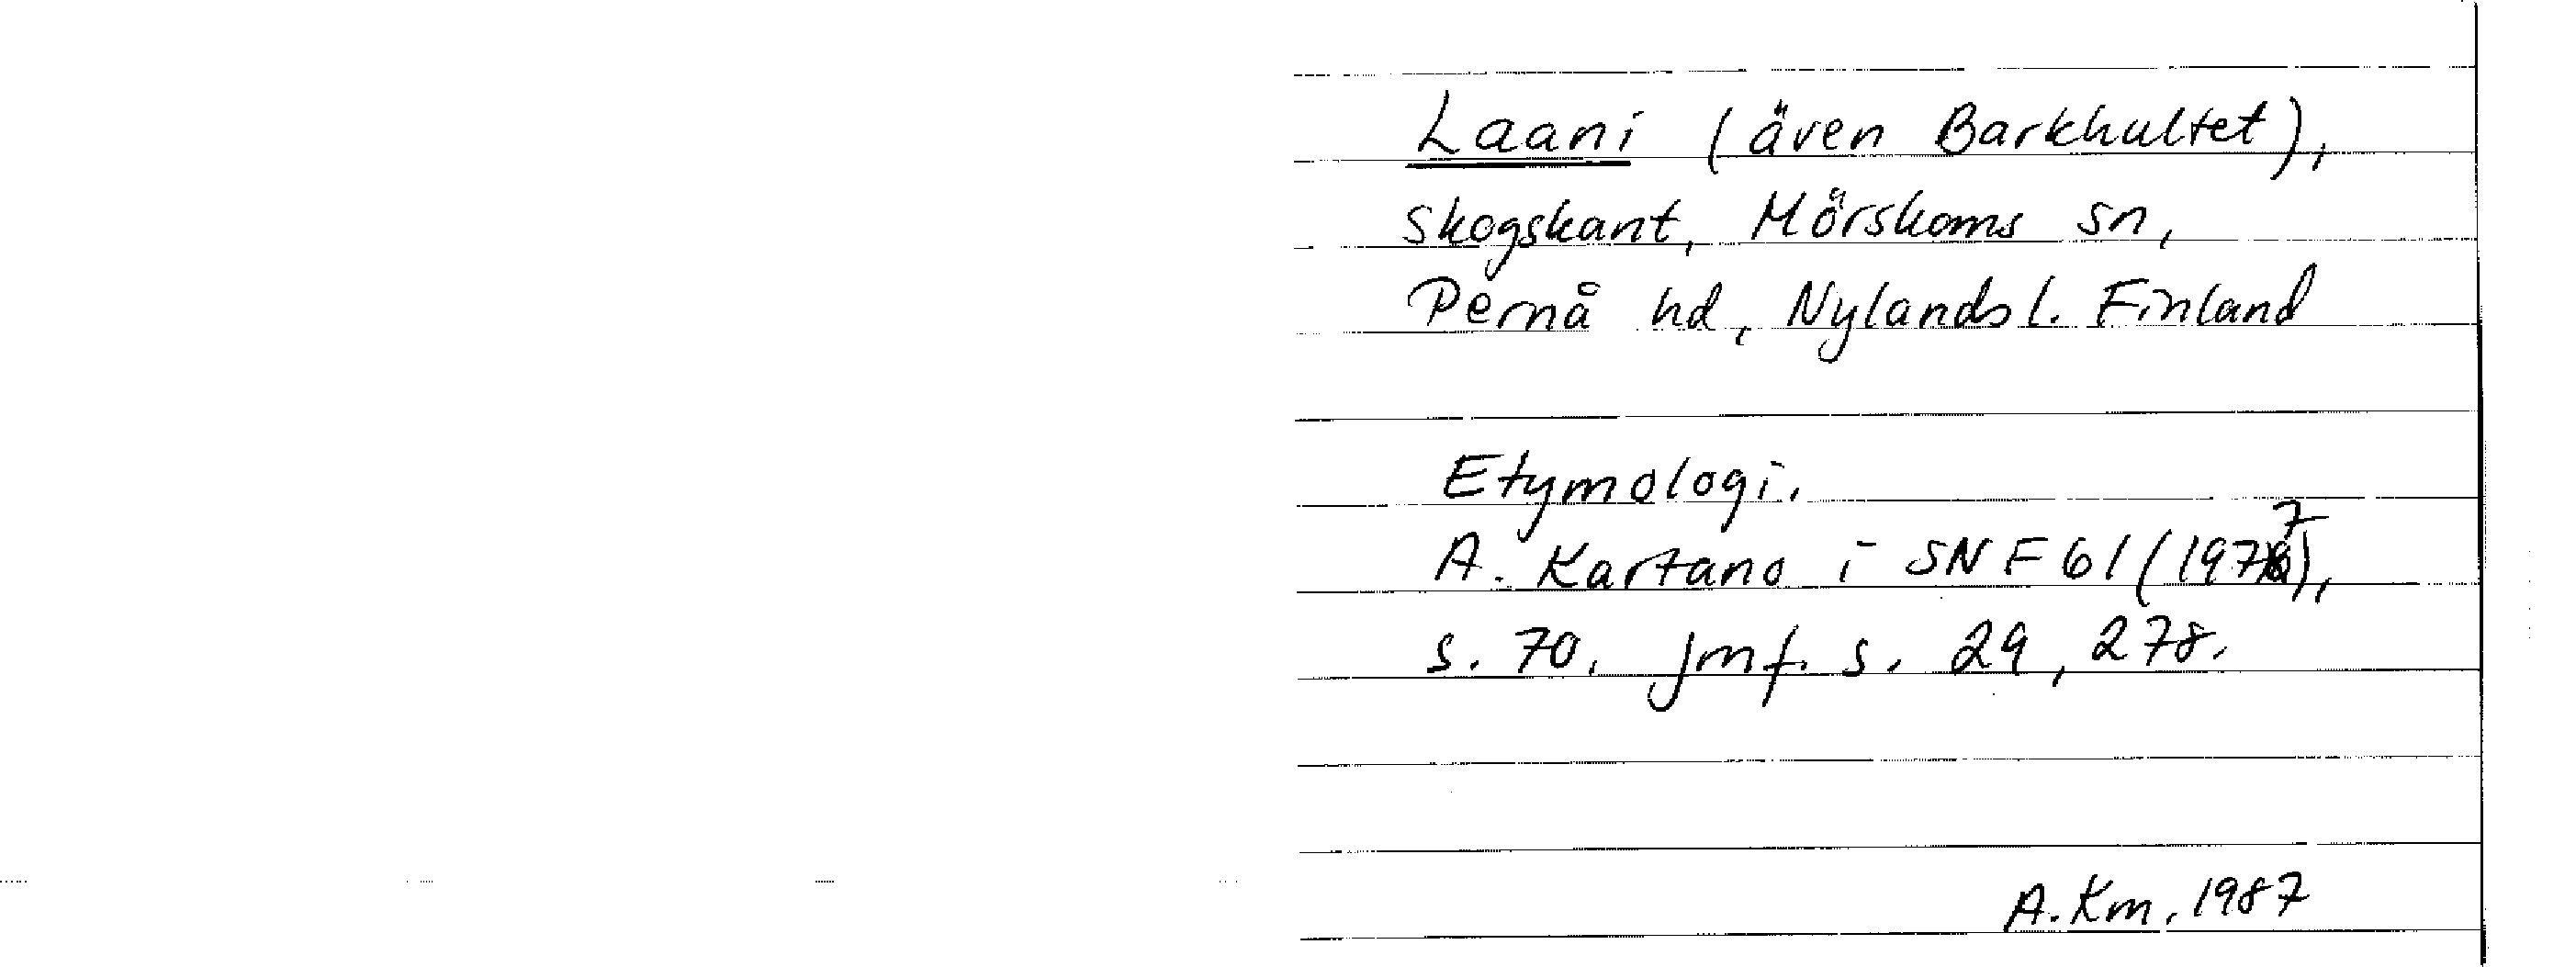 Laani (även Barkhultet),
skogskant, Mörskoms sn,
Pernå hd, Nylands l. Finland
Etymologi.
A. Kartano i SNF 61 (1977),
s. 70. Jmf. s. 29, 278.
A. Km. 1987